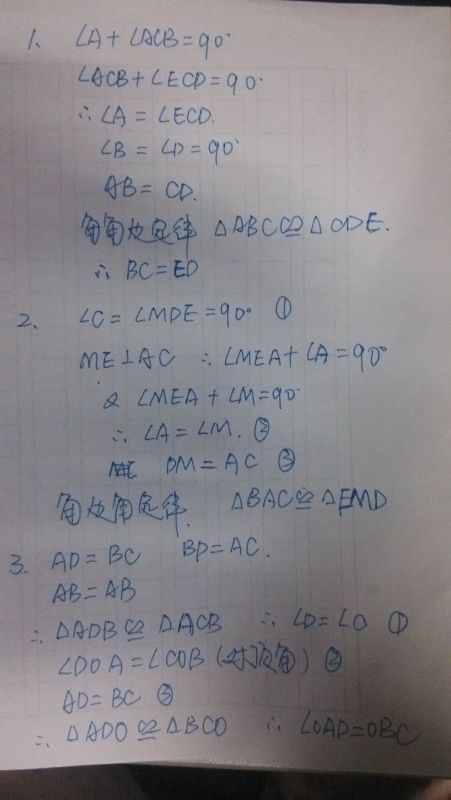 1、 ∠A+∠ACB=90°
∠ACB+∠ECD=90°
∴∠A=∠ECD.
∠B=∠D=90°
AB=CD.
角角边定律 △ABC≌△CDE.
∴BC=ED
2、 ∠C=∠MDE=90° ①
ME⊥AC ∴∠MEA+∠A=90°
又∠MEA+∠M=90°
∴∠A=∠M. ②
DM=AC ③
角边角定律. △BAC≌△EMD
3、 AD=BC BD=AC.
AB=AB
∴△ADB≌△ACB ∴∠D=∠C ①
∠DOA=∠COB(对顶角) ②
AD=BC ③
∴△ADO≌△BCO ∴∠OAD=OBC